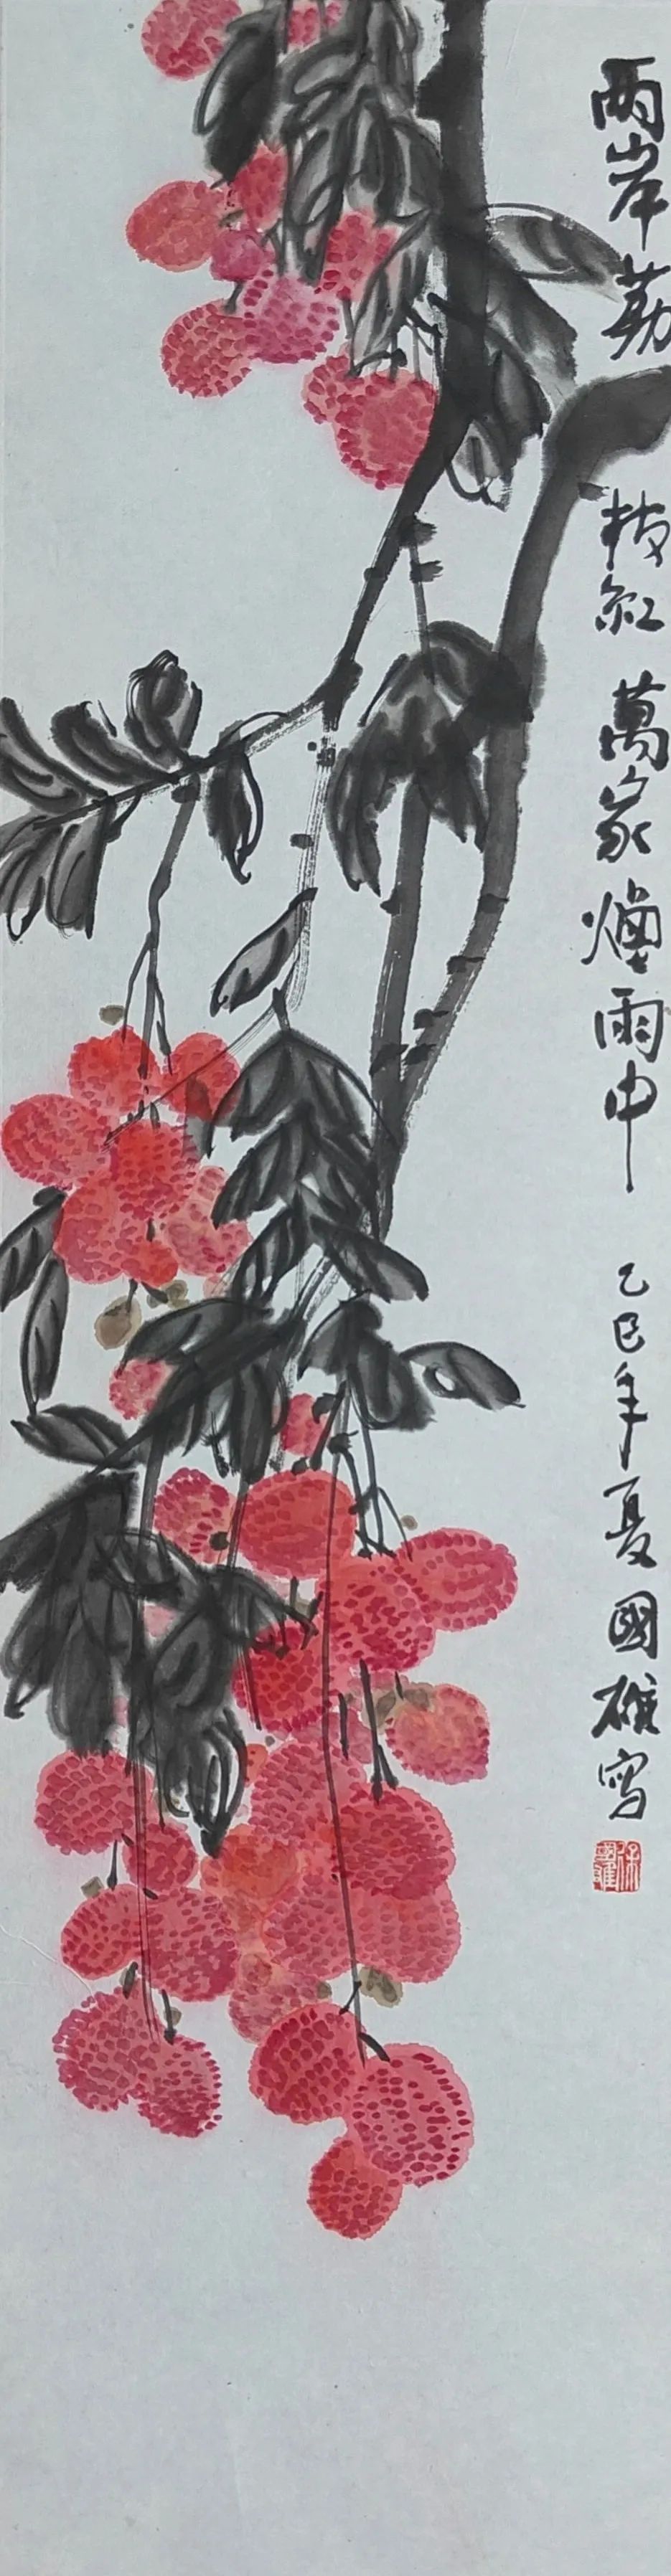 两岸荔枝红 萬家煙雨中 乙巳年夏 國雄寫